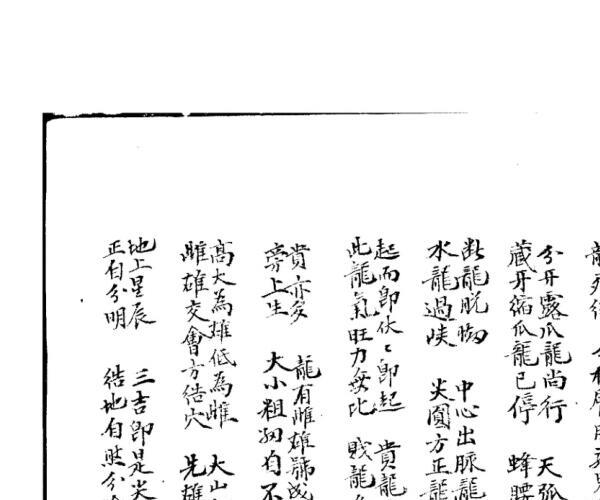 分牙露爪龍尚行 天弧
藏牙縮爪龍已停 蜂腰
斷龍脫 中心出脈龍
水龍過峽 尖圓方正龍
起而即伏〻即起 貴龍
此龍氣旺力無比 賤龍
貴亦多 龍有雌雄
旁上生 大小粗 自不
高大為雄低為雌 大山
雌雄交會方結穴 先雄
地上星辰 三吉即是尖
正自分明 結地自然分